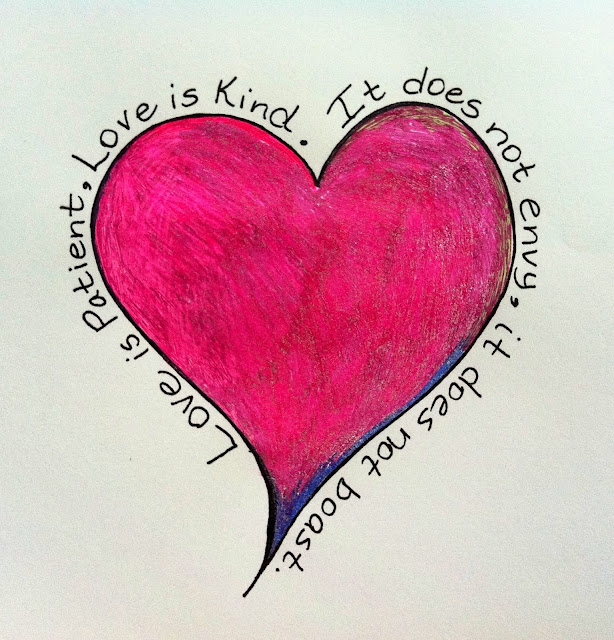 Love is Patient, Love is Kind.
It does not envy, it does not boast.